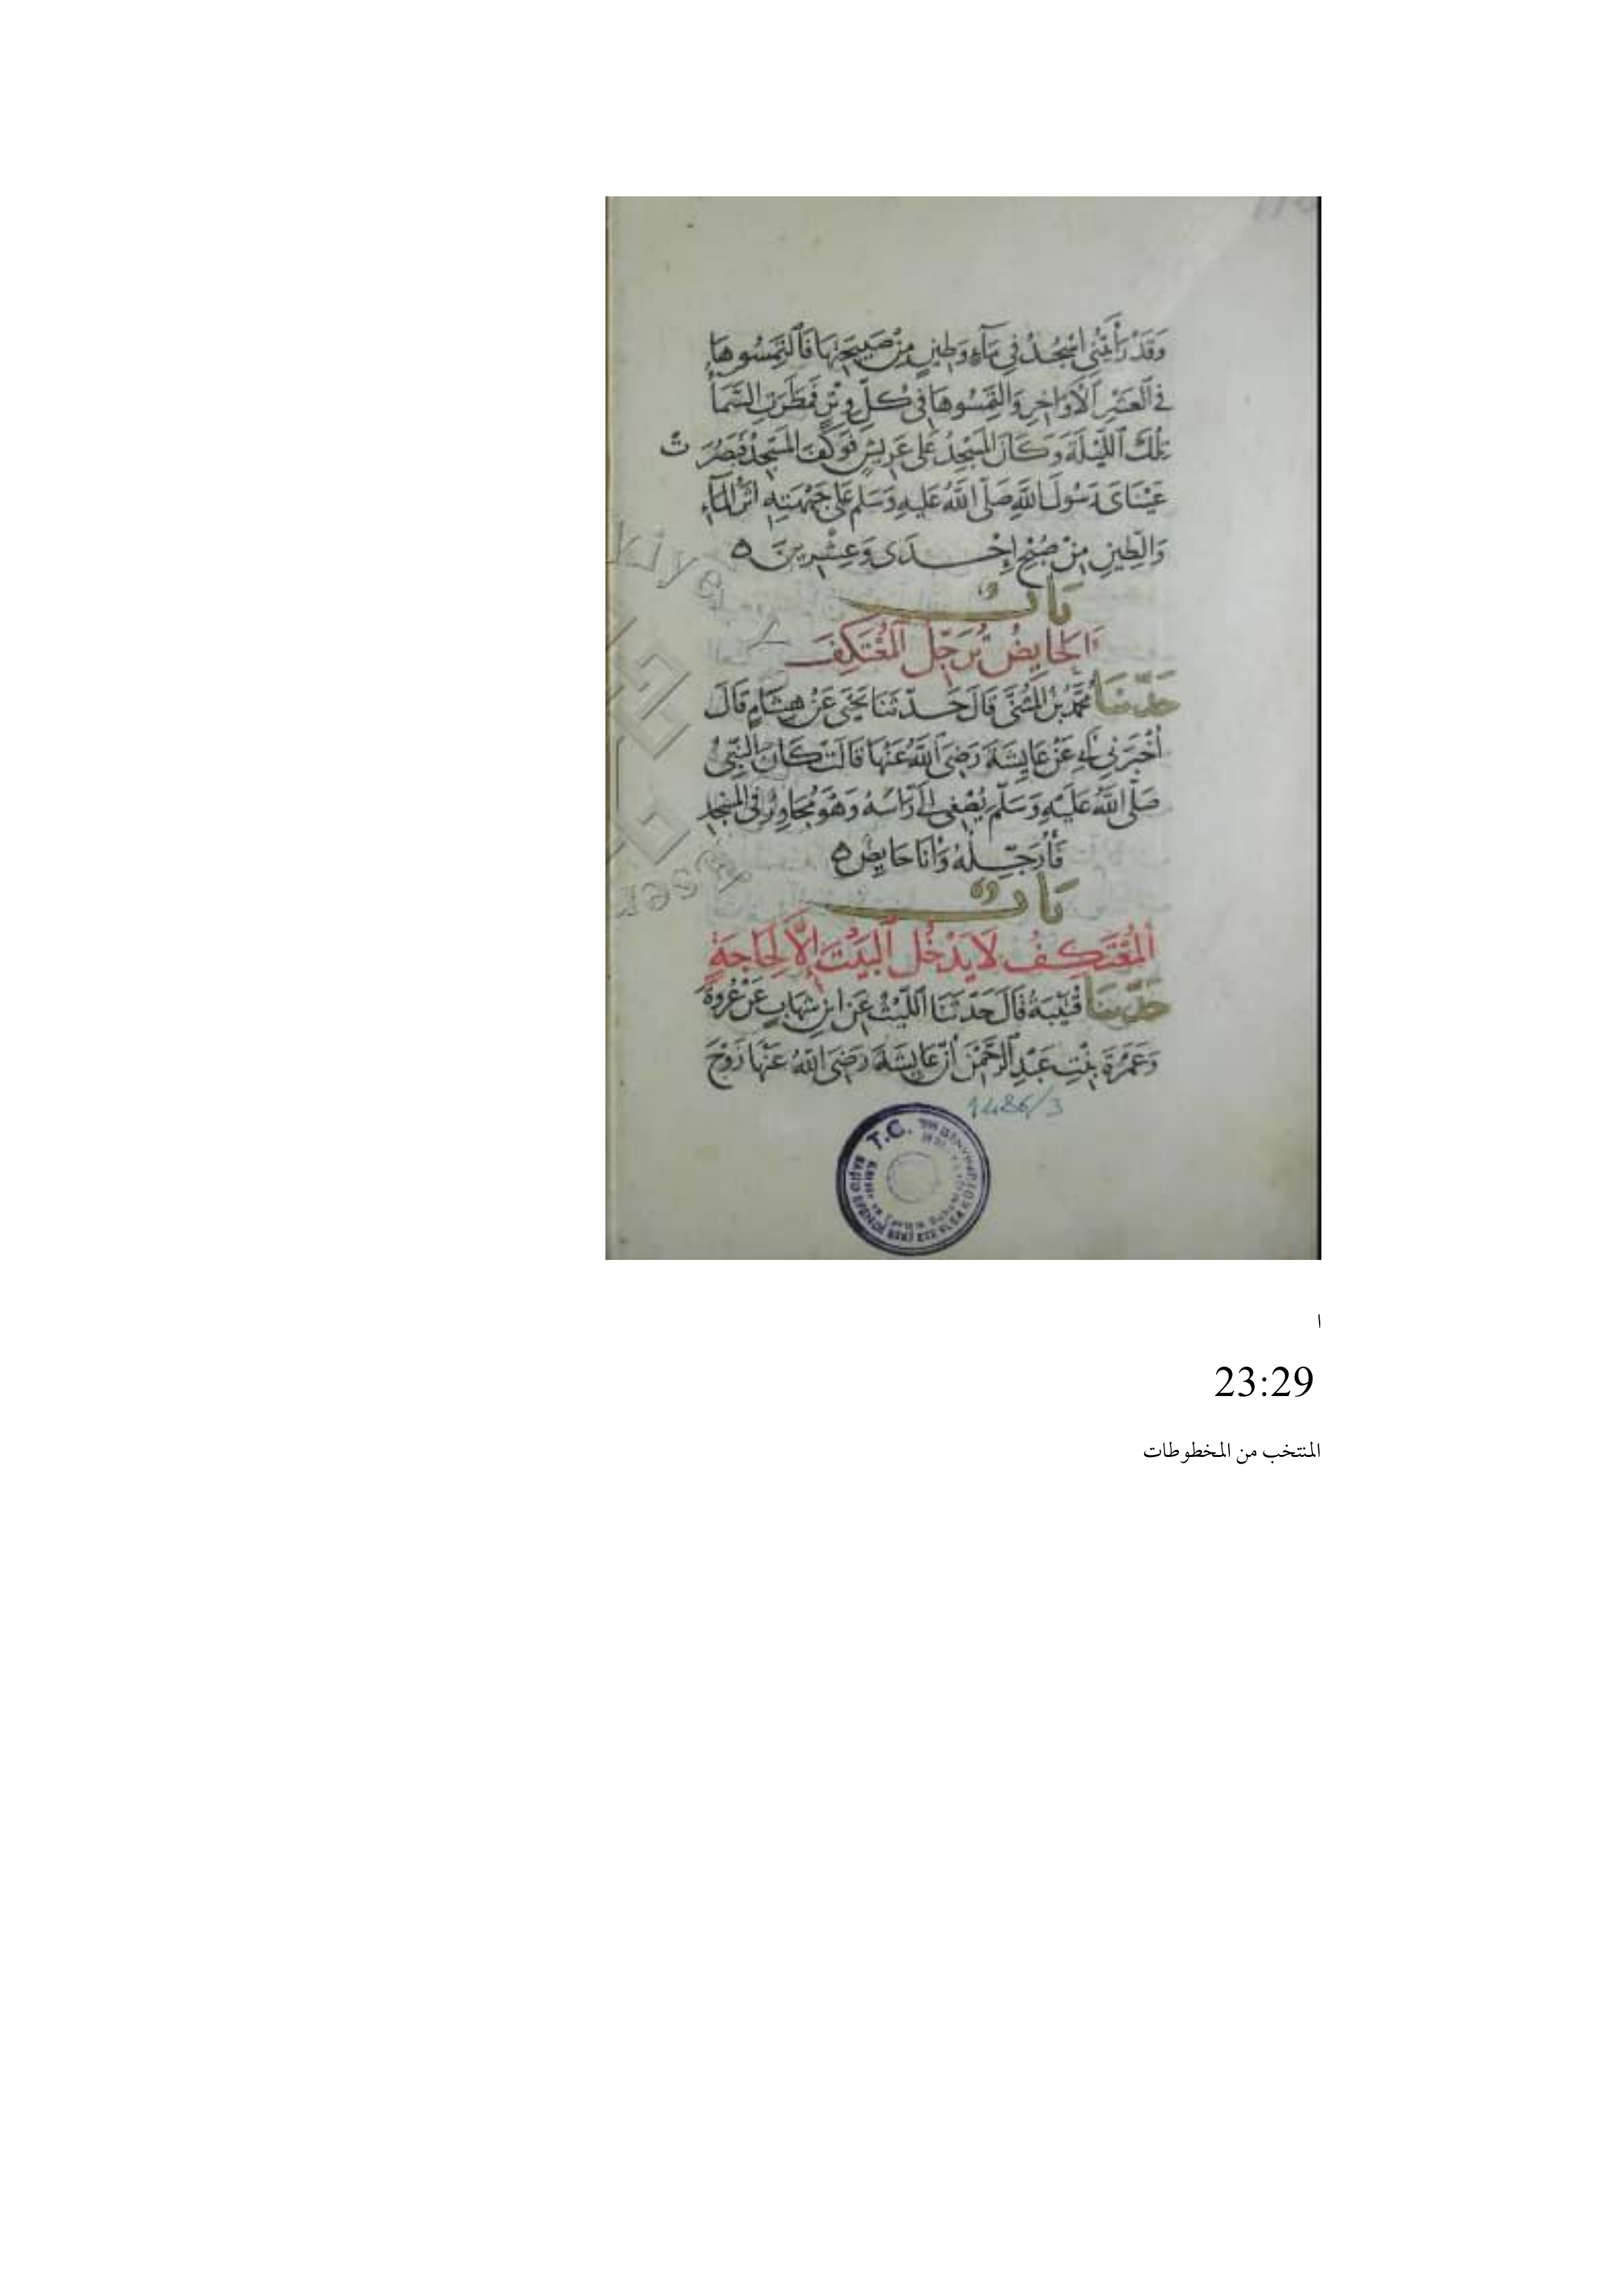 وَقَدْ رَأَيْتُنِي اَسْجُدُ فِي مَآءٍ وَطِينٍ مِنْ صَبِيحَتِهَا فَالْتَمِسُوهَا
فِي الْعَشْرِ الْأَوَاخِرِ وَالْتَمِسُوهَا فِي كُلِّ وِتْرٍ فَمَطَرَتِ السَّمَآءُ
تِلْكَ اللَّيْلَةَ وَكَانَ الْمَسْجِدُ عَلَى عَرِيشٍ فَوَكَفَ الْمَسْجِدُ فَبَصُرَتْ
عَيْنَايَ رَسُولَ اللَّهِ صَلَّى اللَّهُ عَلَيْهِ وَسَلَّمَ عَلَى جَبْهَتِهِ اَثَرُ الْمَآءِ
وَالطِّينِ مِنْ صُبْحِ إِحْدَى وَعِشْرِينَ ه
بَابُ
الْحَايِضُ تُرَجِّلُ الْمُعْتَكِفَ
حَدَّثَنَا مُحَمَّدُ بْنُ الْمُثَنَّى قَالَ حَدَّثَنَا يَحْيَى عَنْ هِشَامٍ قَالَ
أَخْبَرَنِي أَبِي عَنْ عَايِشَةَ رَضِيَ اللَّهُ عَنْهَا قَالَتْ كَانَ النَّبِيُّ
صَلَّى اللَّهُ عَلَيْهِ وَسَلَّمَ يُصْغِي إِلَيَّ رَاسَهُ وَهُوَ مُجَاوِرٌ فِي الْمَسْجِدِ
فَأُرَجِّلُهُ وَأَنَا حَايِضٌ ه
بَابُ
الْمُعْتَكِفُ لَا يَدْخُلُ الْبَيْتَ إِلَّا لِحَاجَةٍ
حَدَّثَنَا قُتَيْبَةُ قَالَ حَدَّثَنَا اللَّيْثُ عَنِ ابْنِ شِهَابٍ عَنْ عُرْوَةَ
وَعَمْرَةَ بِنْتِ عَبْدِ الرَّحْمَنِ أَنَّ عَايِشَةَ رَضِيَ اللَّهُ عَنْهَا زَوْجَ
1486/3
T.C.
ا
23:29
المنتخب من المخطوطات